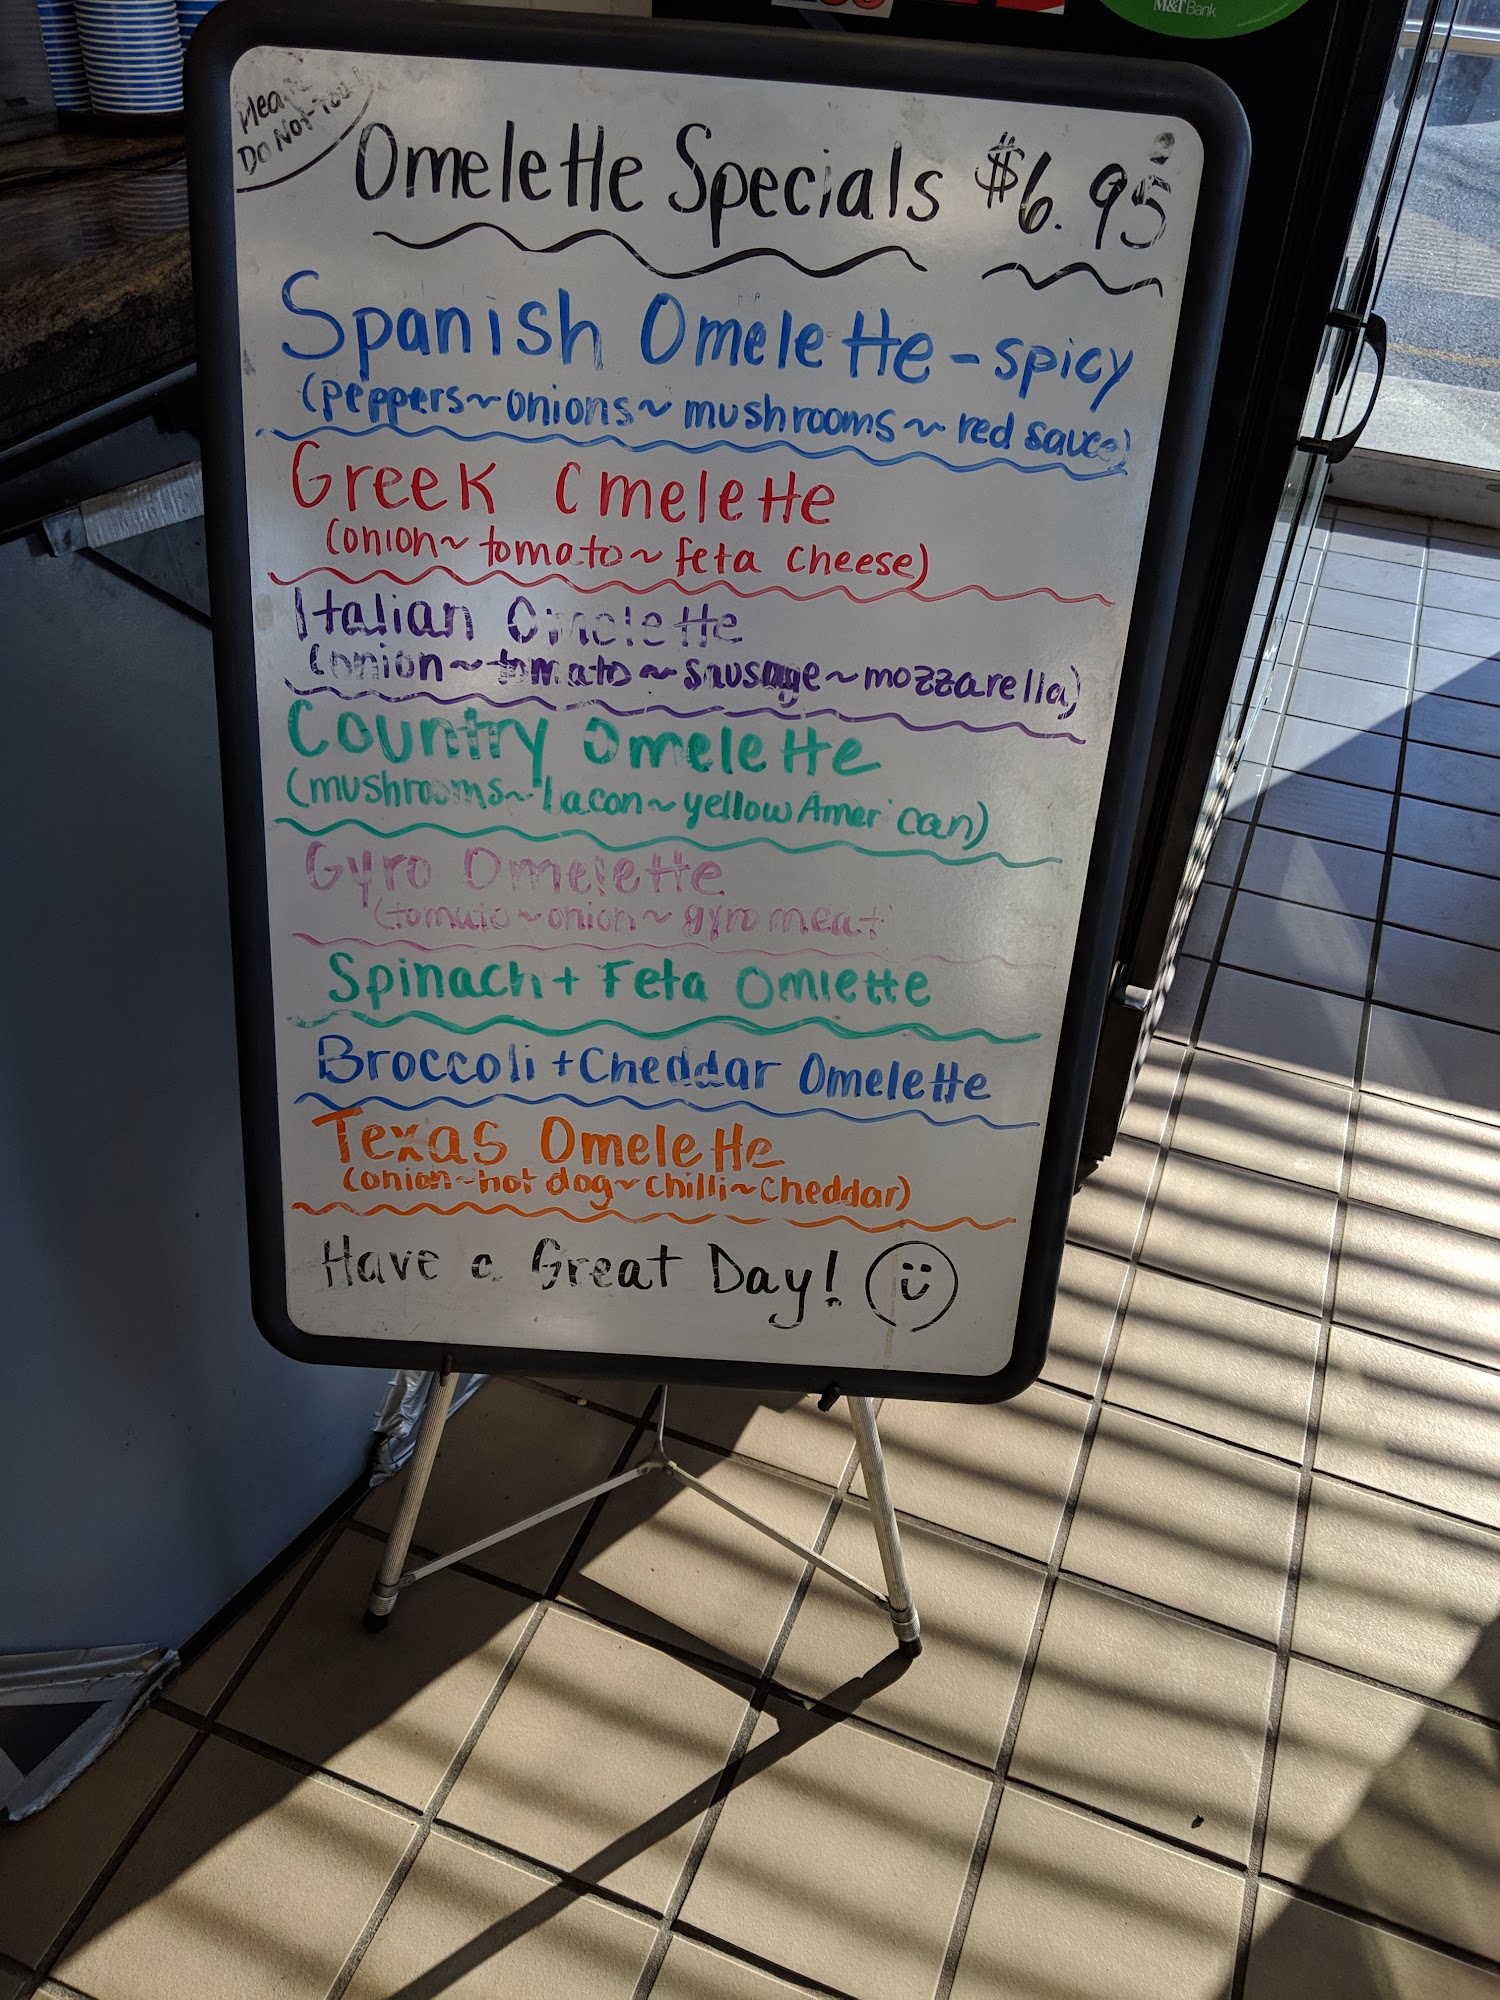 M&T Bank
Please
Do Not Touch
Omelette Specials $6.95
Spanish Omelette - spicy
(peppers~onions~mushrooms~red sauce)
Greek Omelette
(onion~tomato~feta cheese)
Italian Omelette
(onion~tomato~sausage~mozzarella)
Country Omelette
(mushrooms~bacon~yellow American)
Gyro Omelette
(tomato~onion~gyro meat
Spinach + Feta Omlette
Broccoli + Cheddar Omelette
Texas Omelette
(onion~hot dog~chilli~cheddar)
Have a Great Day!